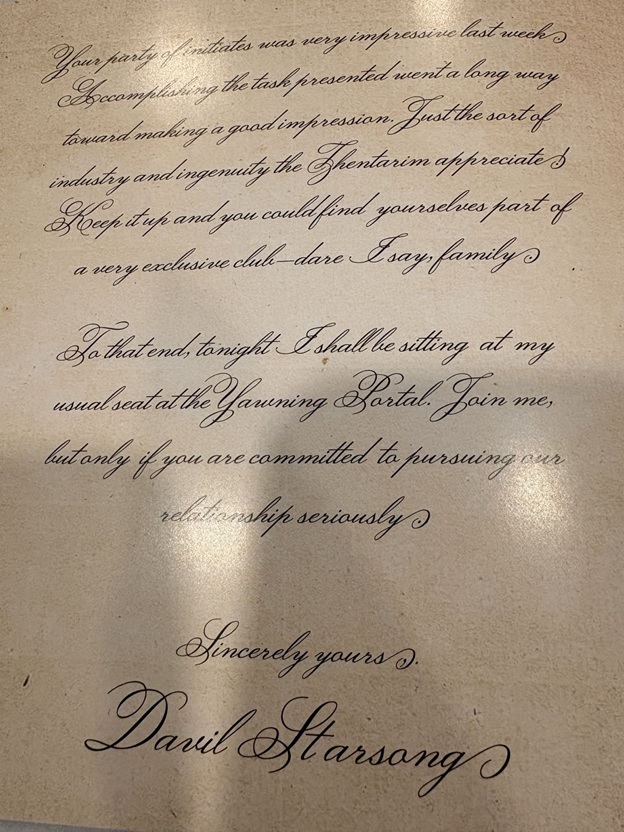 Your party of initiates was very impressive last week
Accomplishing the task presented went a long way
toward making a good impression. Just the sort of
industry and ingenuity the Zhentarim appreciate
Keep it up and you could find yourselves part of
a very exclusive club—dare I say, family
To that end, tonight I shall be sitting at my
usual seat at the Yawning Portal. Join me,
but only if you are committed to pursuing our
relationship seriously
Sincerely yours.
Davil Starsong